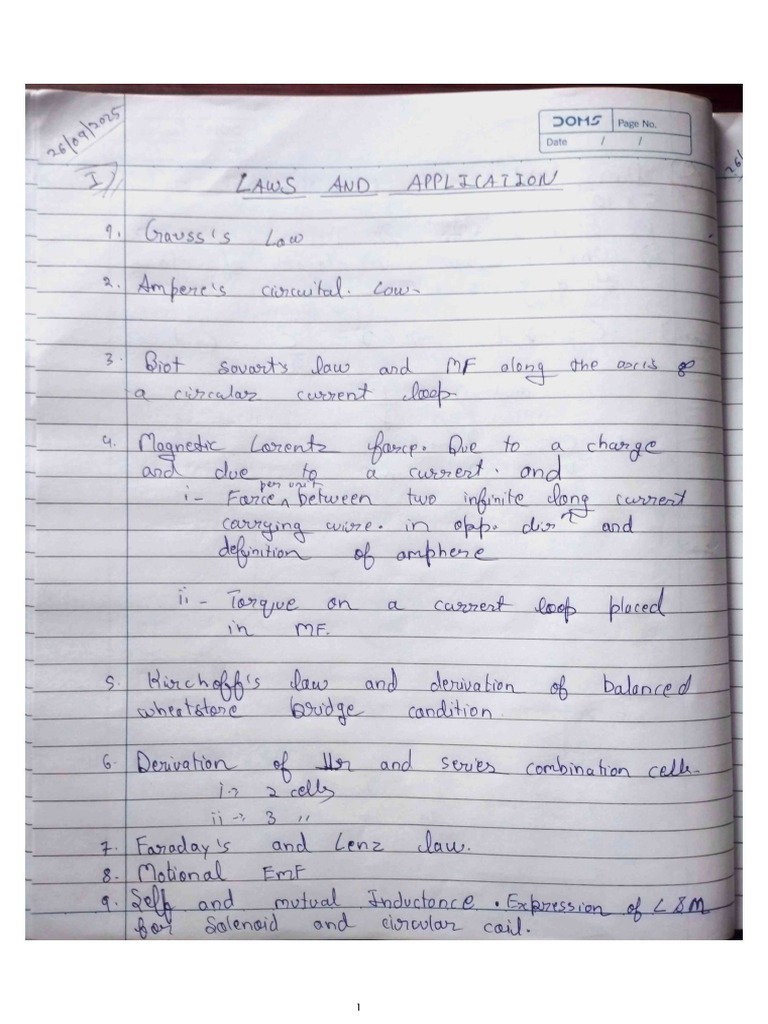 26/09/2025
DOMS Page No.
Date / /
I)
LAWS AND APPLICATION
1. Gauss's Law
2. Ampere's circuital. Law.
3. Biot savart's law and MF along the axis of
a circular current loop.
4. Magnetic Lorentz force. Due to a charge
and due to a current. and
per unit
i - Force ^ between two infinite long current
carrying wire. in opp. dirⁿ and
definition of amphere
ii - Torque on a current loop placed
in MF.
5. Kirchoff's law and derivation of balanced
wheatstone bridge condition
6. Derivation of ||r and series combination cells.
i → 2 cells
ii → 3 "
7. Faraday's and Lenz law.
8. Motional EMF
9. Self and mutual Inductance. Expression of L & M
for Solenoid and circular coil.
1